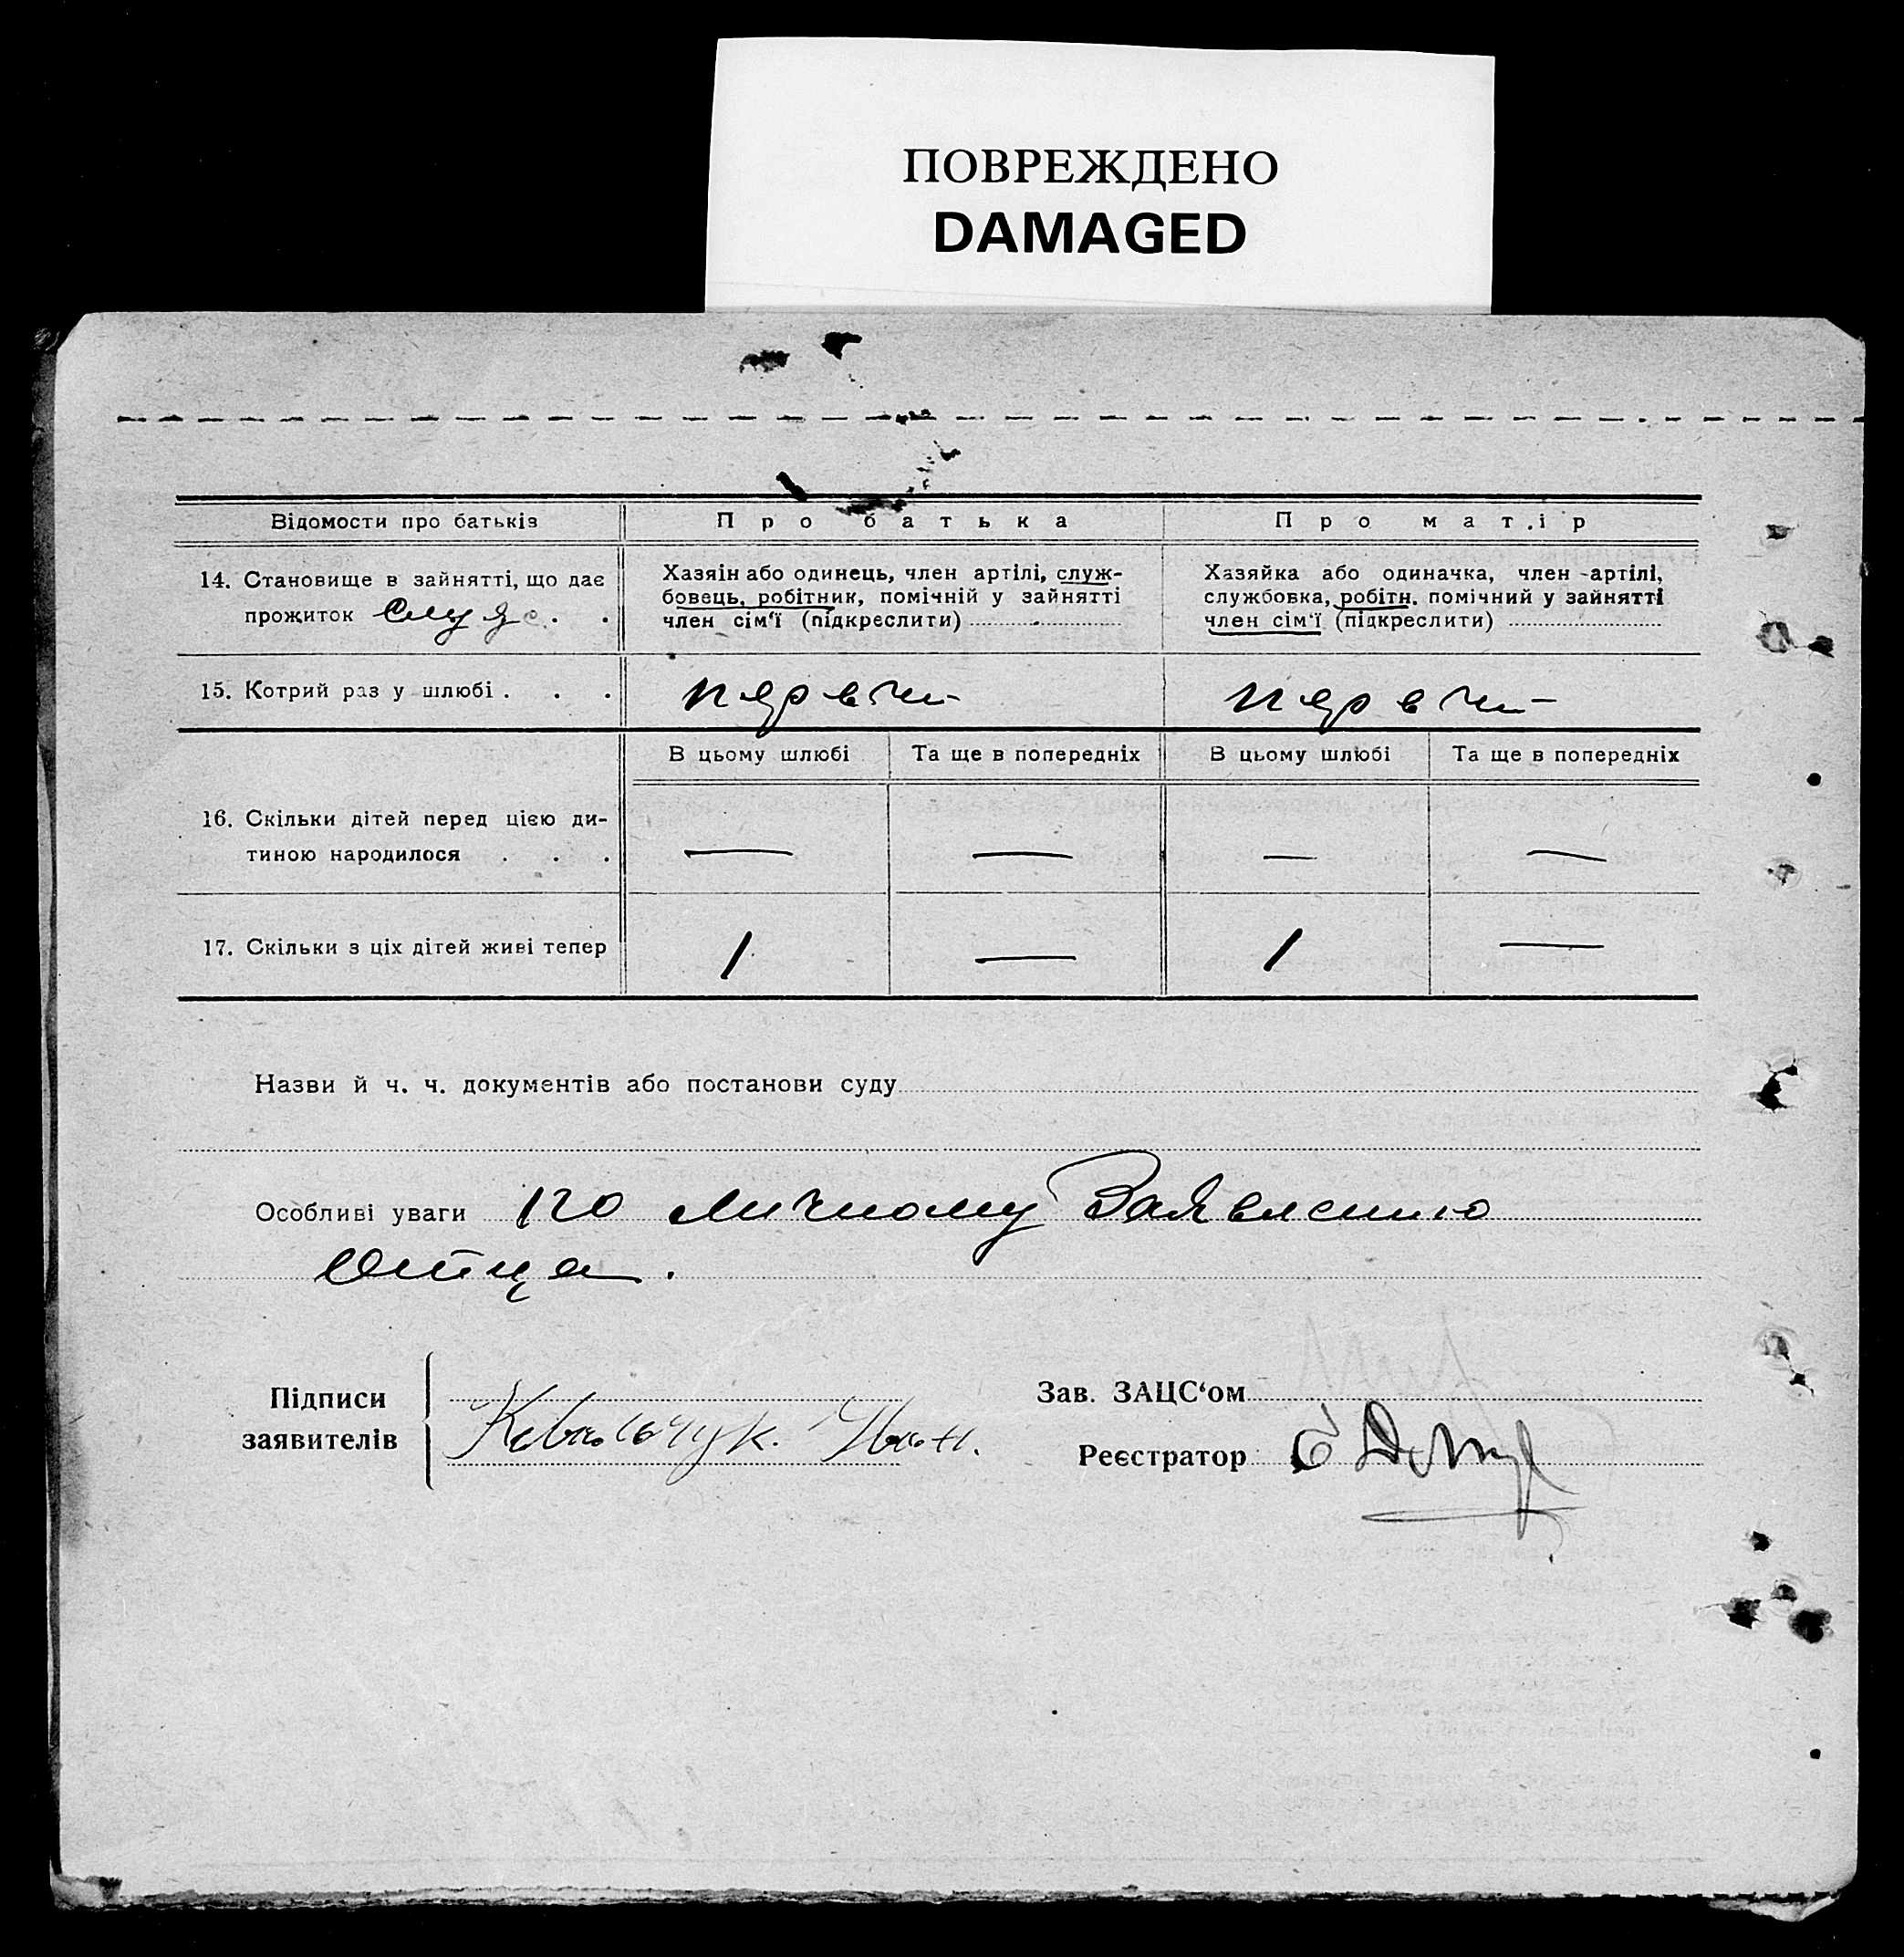 ПОВРЕЖДЕНО
DAMAGED
Відомости про батьків
Про батька
Про матір
14. Становище в зайнятті, що дає
прожиток Служ. . .
Хазяін або одинець, член артілі, служ-
бовець, робітник, помічній у зайнятті
член сім'ї (підкреслити)
Хазяйка або одиначка, член артілі,
службовка, робітн. помічний у зайнятті
член сім'ї (підкреслити)
15. Котрий раз у шлюбі . . .
первый
первый
В цьому шлюбі
Та ще в попередніх
В цьому шлюбі
Та ще в попередніх
16. Скільки дітей перед цією ди-
тиною народилося . . .
— — — —
17. Скільки з ціх дітей живі тепер
1 — 1 —
Назви й ч. ч. документів або постанови суду
Особливі уваги по личному Заявлению
Отца.
Підписи
заявителів
Ковальчук. Иван.
Зав. ЗАЦС'ом
Реєстратор